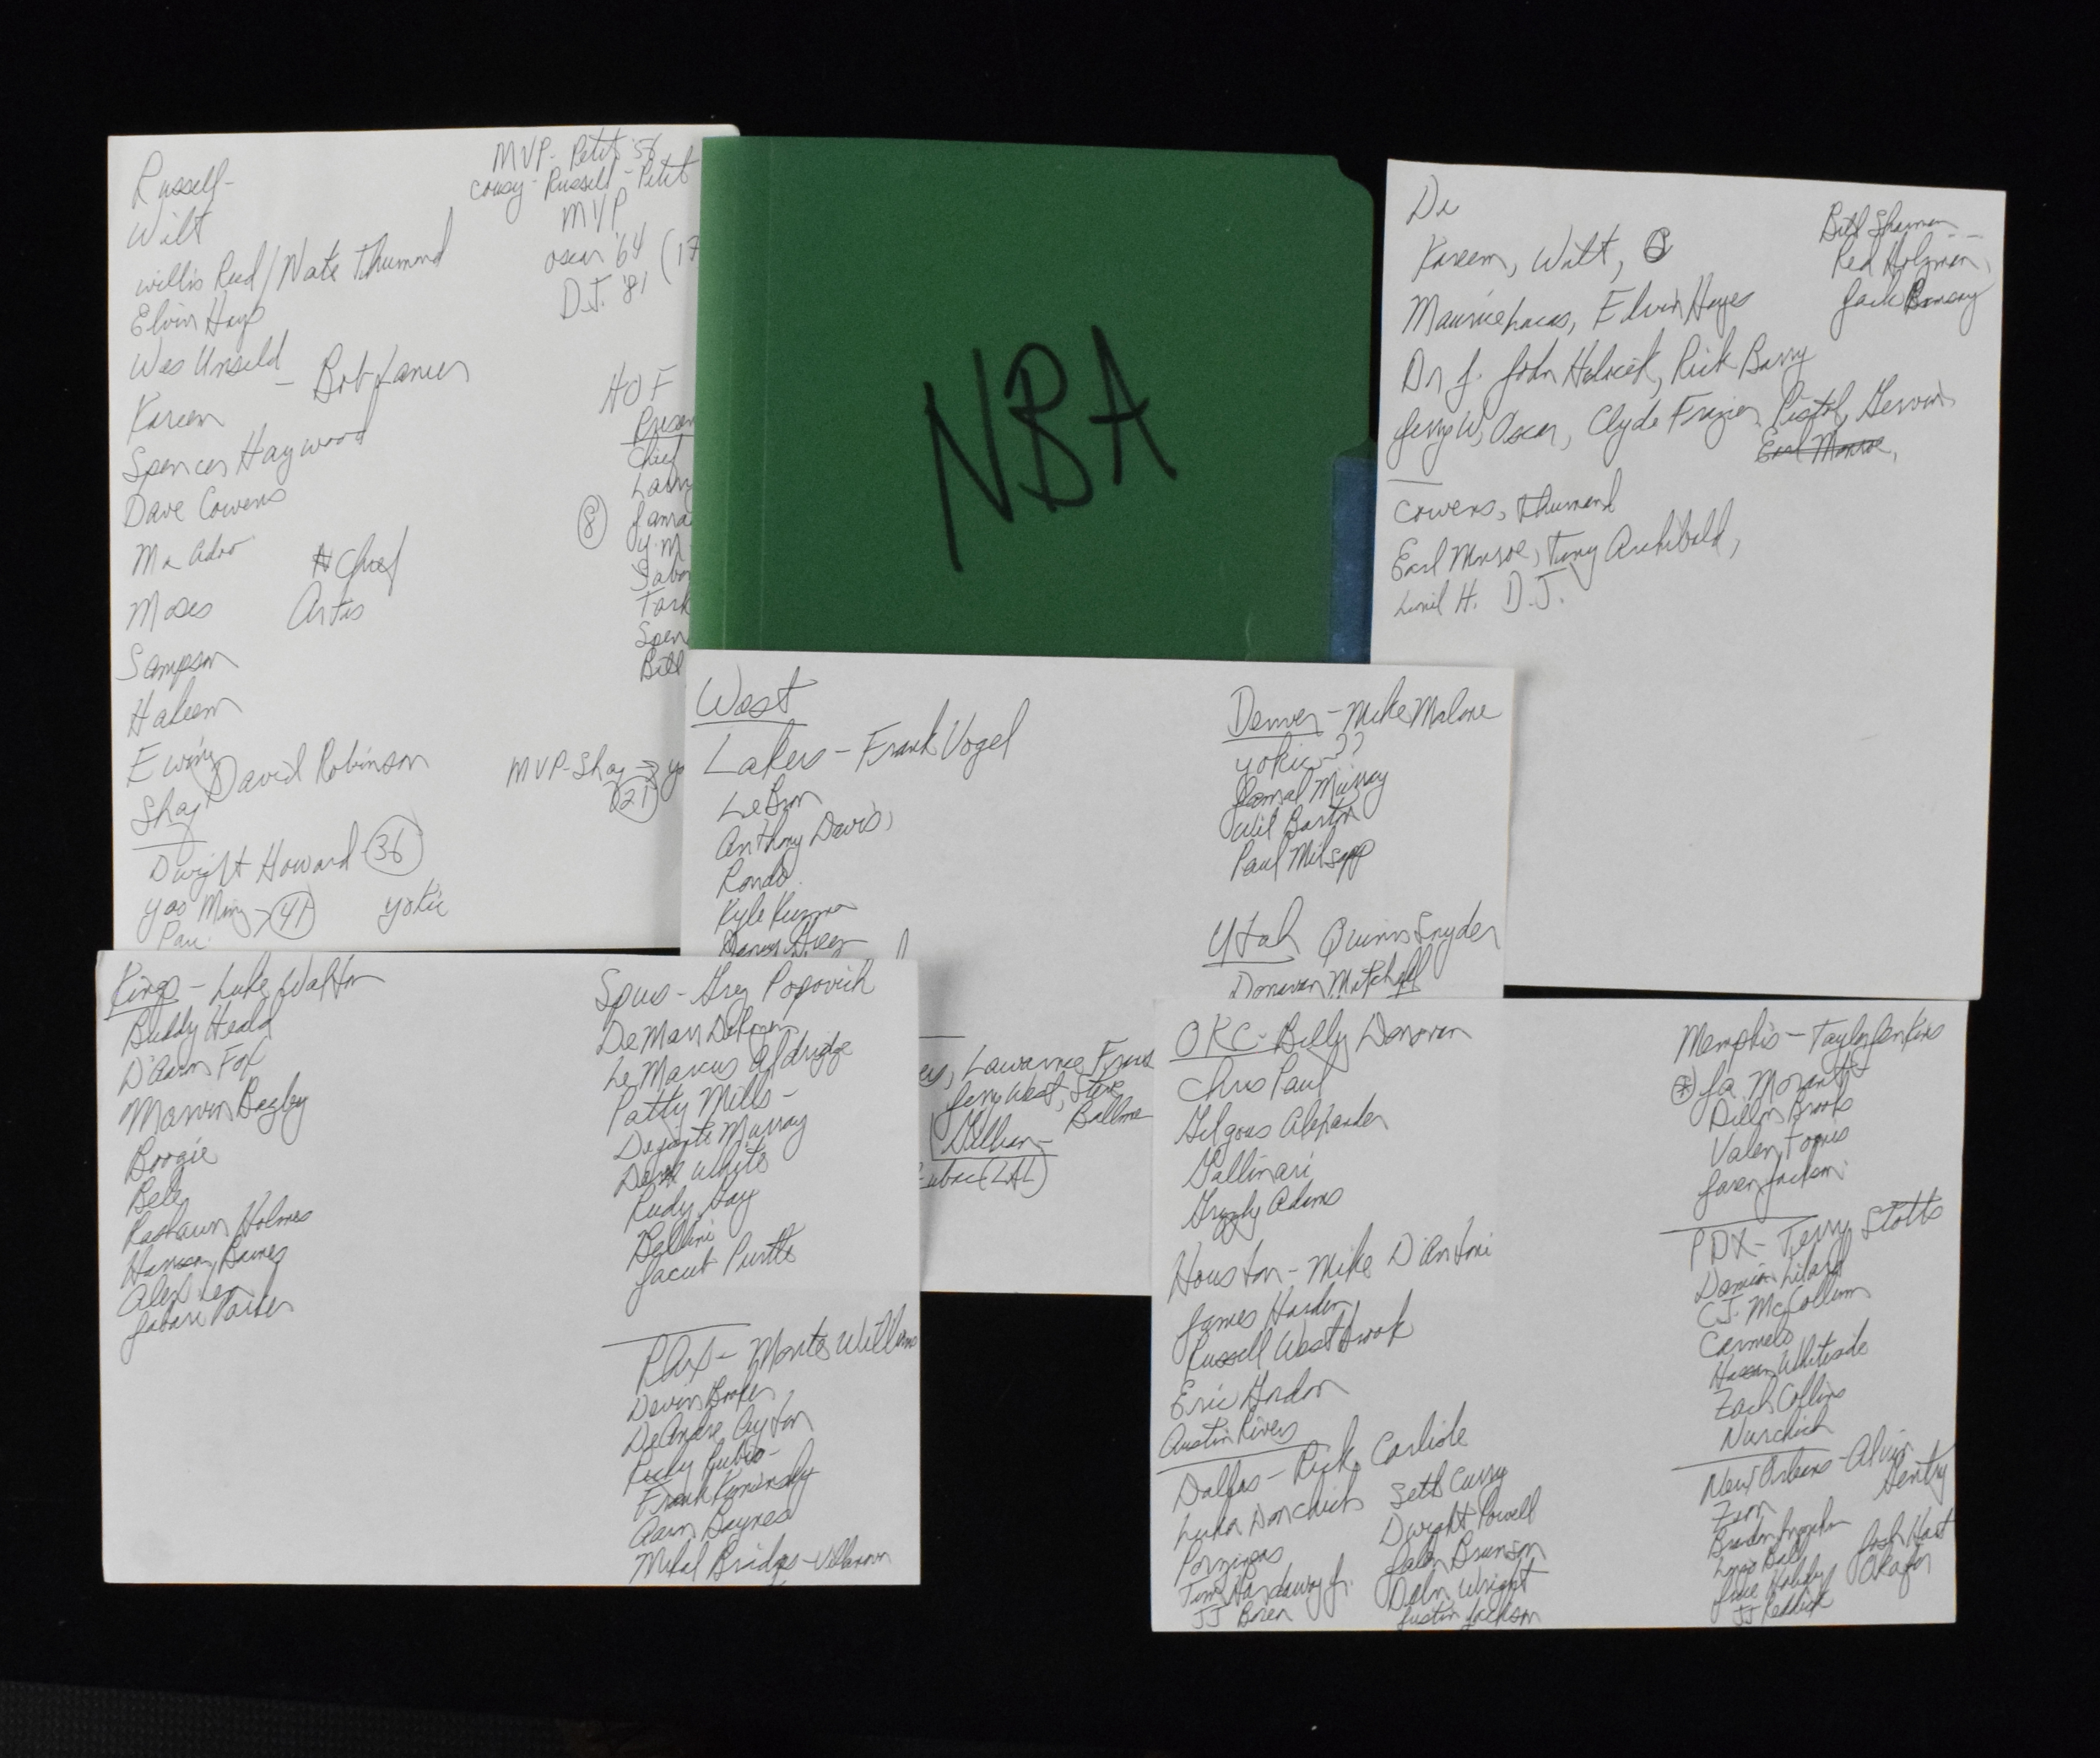 Russell-
Wilt
Willis Reed / Nate Thurmond
Elvin Hays
Wes Unseld
- Bob Lanier
Kareem
Spencer Haywood
Dave Cowens
McAdoo
Chief
Moses
Artis
Sampson
Hakeem
Ewing
David Robinson
Shaq
Dwight Howard (36)
Yao Ming > (41)
Yokic
Pau
MVP- Petit '56
Cousy - Russell - Petit
MVP
Oscar '64 (17
D.J. '81
HOF
Presen
Chief
Larry
(8)
Jama
Y.M
Sabo
Tark
Spen
Bill
MVP-Shaq → Yo
(21)
NBA
De
Kareem, Wilt,
Maurice Lucas, Elvin Hayes
Dr J. John Havlicek, Rick Barry
Jerry W, Oscar, Clyde Frazier, Pistol, Gervin
Earl Monroe,
Cowens, Thurmond
Earl Monroe, Tiny Archibald,
Lionel H. D.J.
Bill Sharman
Red Holzman,
Jack Ramsay
West
Lakers - Frank Vogel
LeBron
Anthony Davis,
Rondo
Kyle Kuzma
Danny Green
Denver - Mike Malone
Yokic ??
Jamal Murray
Will Barton
Paul Milsapp
Utah Quinn Snyder
Donavan Mitchell
es, Lawrence Frank
Jerry West, Steve
Ballme
Gillian-
Zubac (LAL)
Kings - Luke Walton
Buddy Heald
D'Aaron Fox
Marvin Bagley
Boogie
Bele
Rashawn Holmes
Harrison Barnes
Alex Len
Jabari Parker
Spurs - Greg Popovich
DeMarr DeRozen
LeMarcus Aldridge
Patty Mills -
Dejonte Murray
Derek White
Rudy Gay
Bellini
Jacub Purtle
Phx - Monte Williams
Devin Booker
DeAndre Ayton
Ricky Rubio-
Frank Kaminsky
Aaron Baynes
Mikal Bridges - Villanova
OKC - Billy Donovan
Chris Paul
Gilgous Alexander
Gallinari
Grizzly Adams
Houston - Mike D'Antoni
James Harden
Russell Westbrook
Eric Gordon
Austin Rivers
Dallas - Rick Carlisle
Luka Donchich
Porzingas
Tim Hardaway Jr.
JJ Barea
Seth Curry
Dwight Powell
Jalen Brunson
Delon Wright
Justin Jackson
Memphis - Taylor Jenkins
(*) Ja Morant
Dillon Brooks
Valen Tonis
Jaren Jackson
PDX - Terry Stotts
Damian Lilard
C.J. McCollum
Carmelo
Hassan Whiteside
Zach Collins
Nurchich
New Orleans - Alvin
Gentry
Zion
Brandon Ingram
Lonzo Ball
Jrue Holiday
JJ Reddick
Josh Hart
Okafor